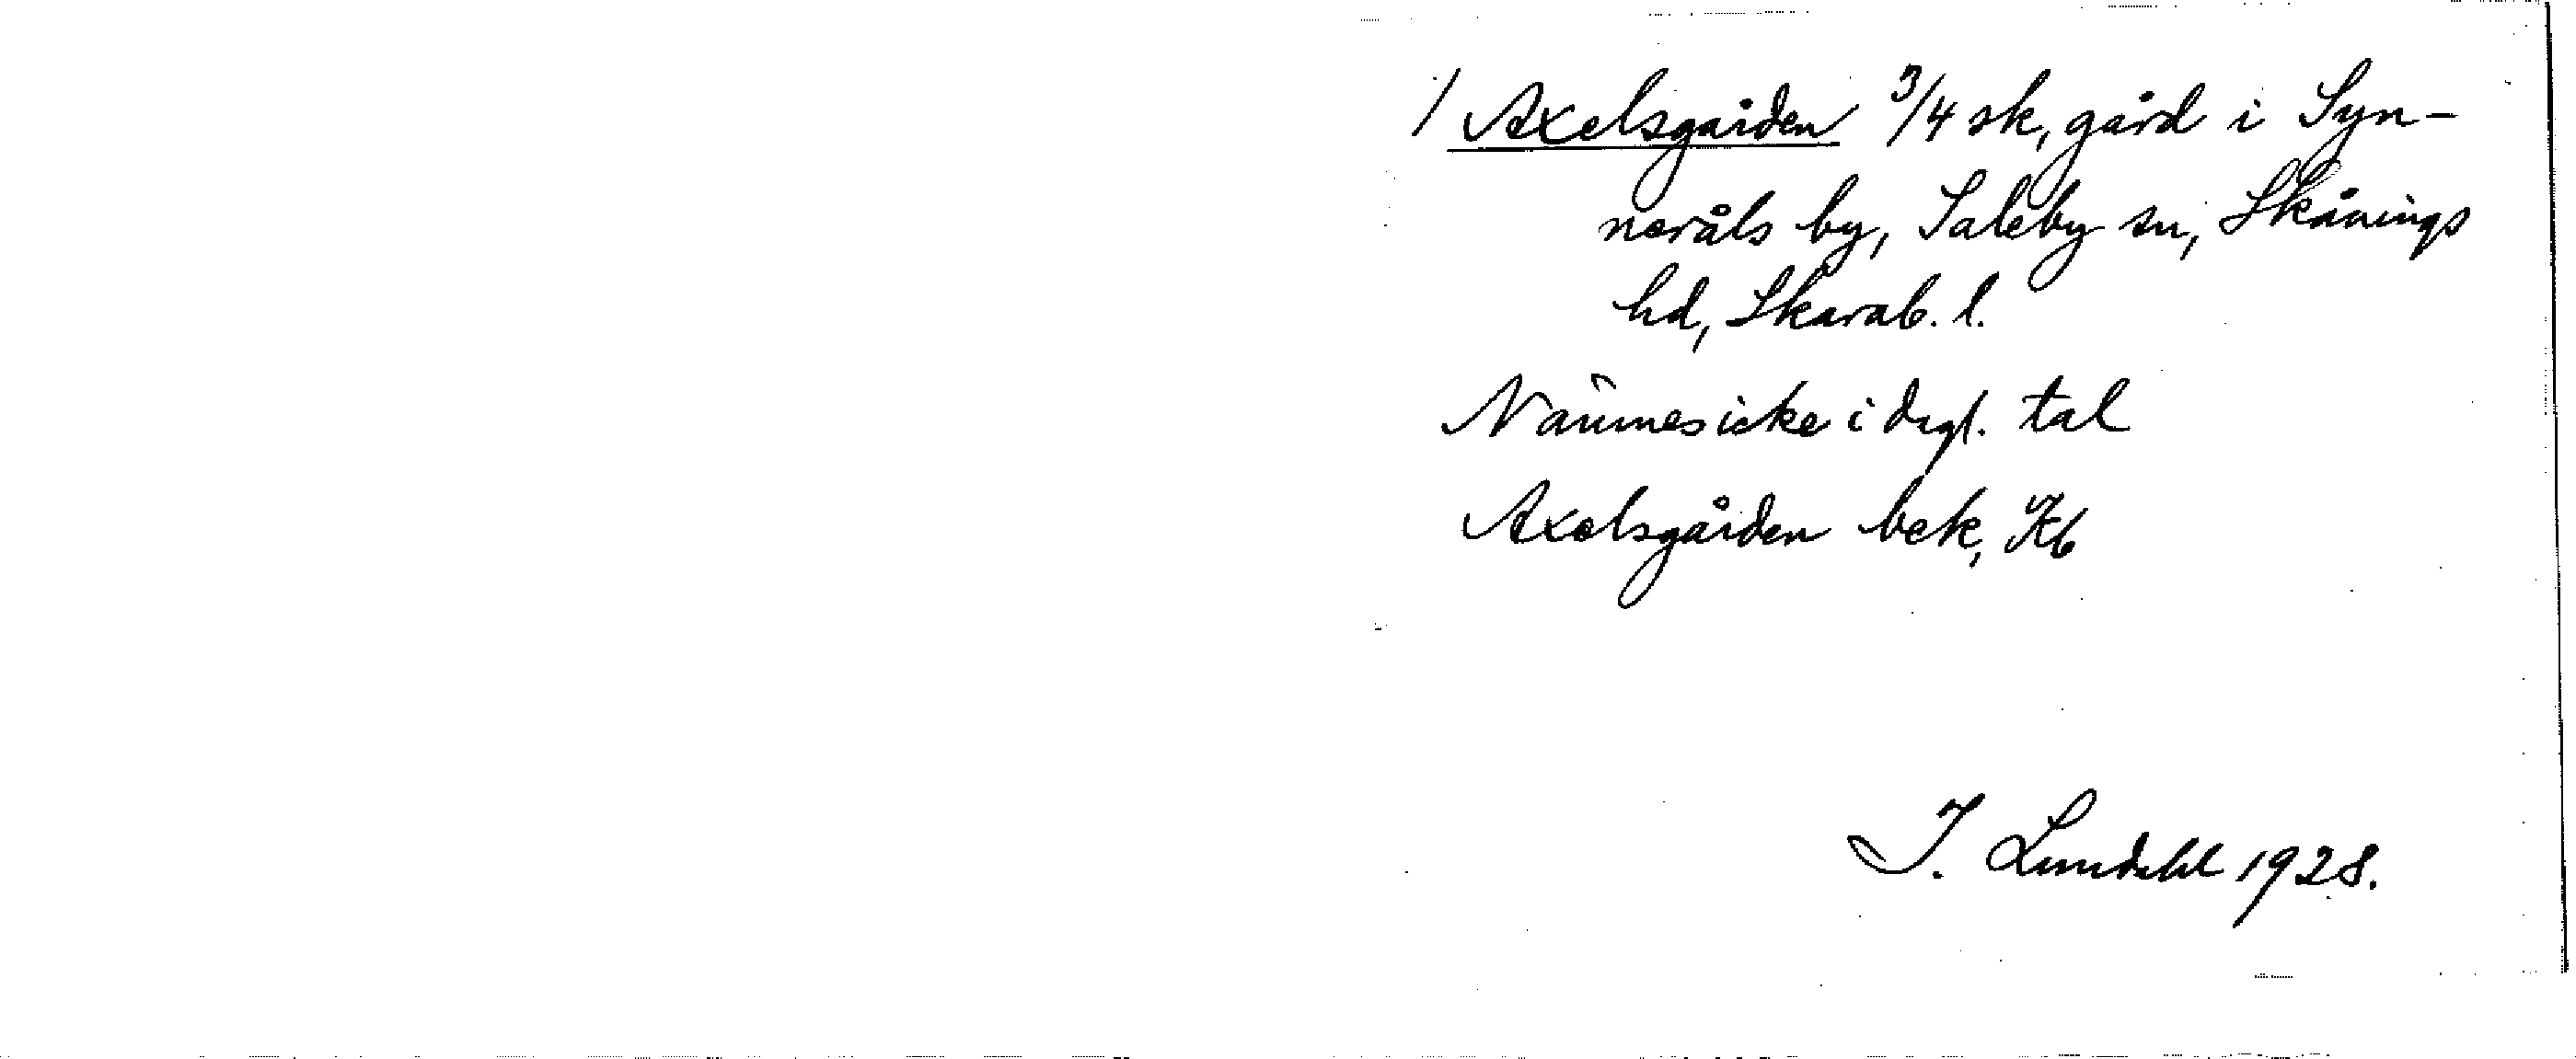 / Axelsgården 3/4 sk, gård i Syn-
neråls by, Saleby sn, Skånings
hd, Skarab. l.
Nämnes icke i dagl. tal
Axelsgården bek, Kb
I. Lundahl 1928.